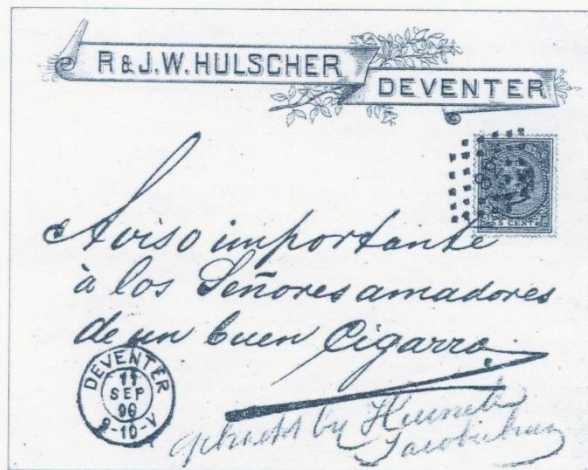 R & J.W. HULSCHER
DEVENTER
5 CENT
Aviso importante
à los Señores amadores
de un buen Cigarro.
DEVENTER
11
SEP
9-10-V
by